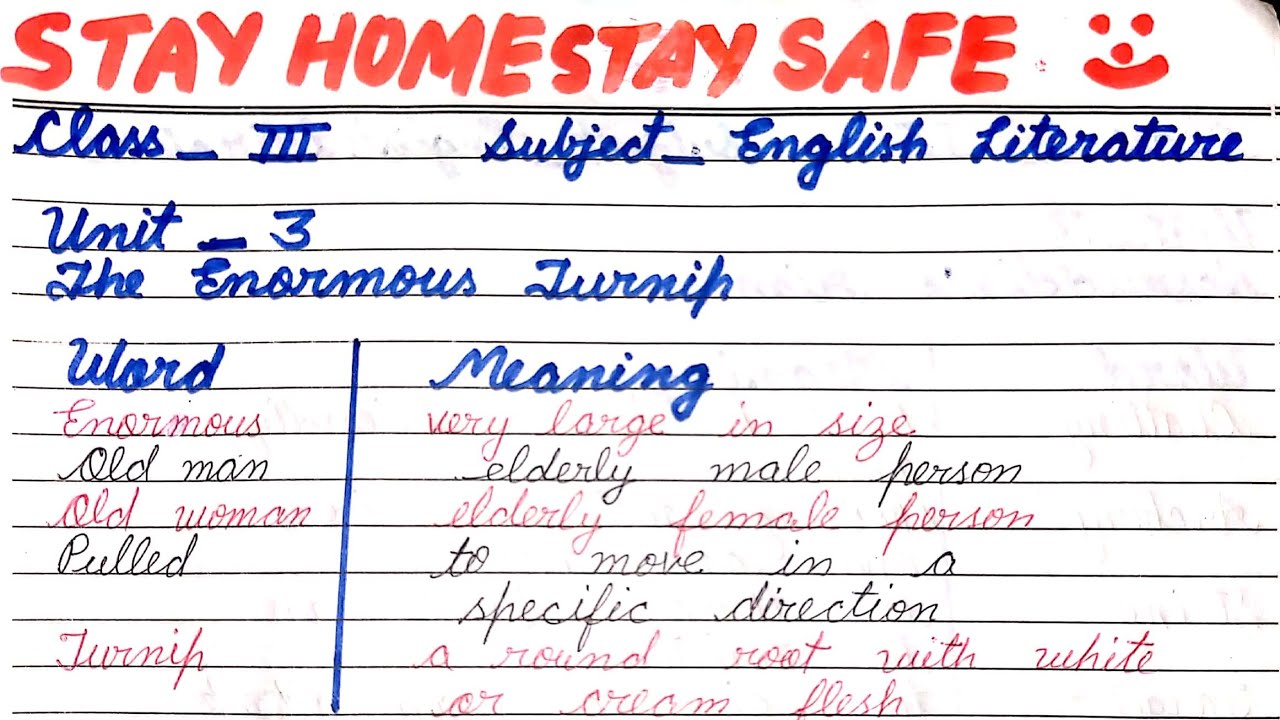 STAY HOME STAY SAFE
Class - III Subject - English Literature
Unit - 3
The Enormous Turnip
Word Meaning
Enormous very large in size
Old man elderly male person
Old woman elderly female person
Pulled to move in a
specific direction
Turnip a round root with white
or cream flesh